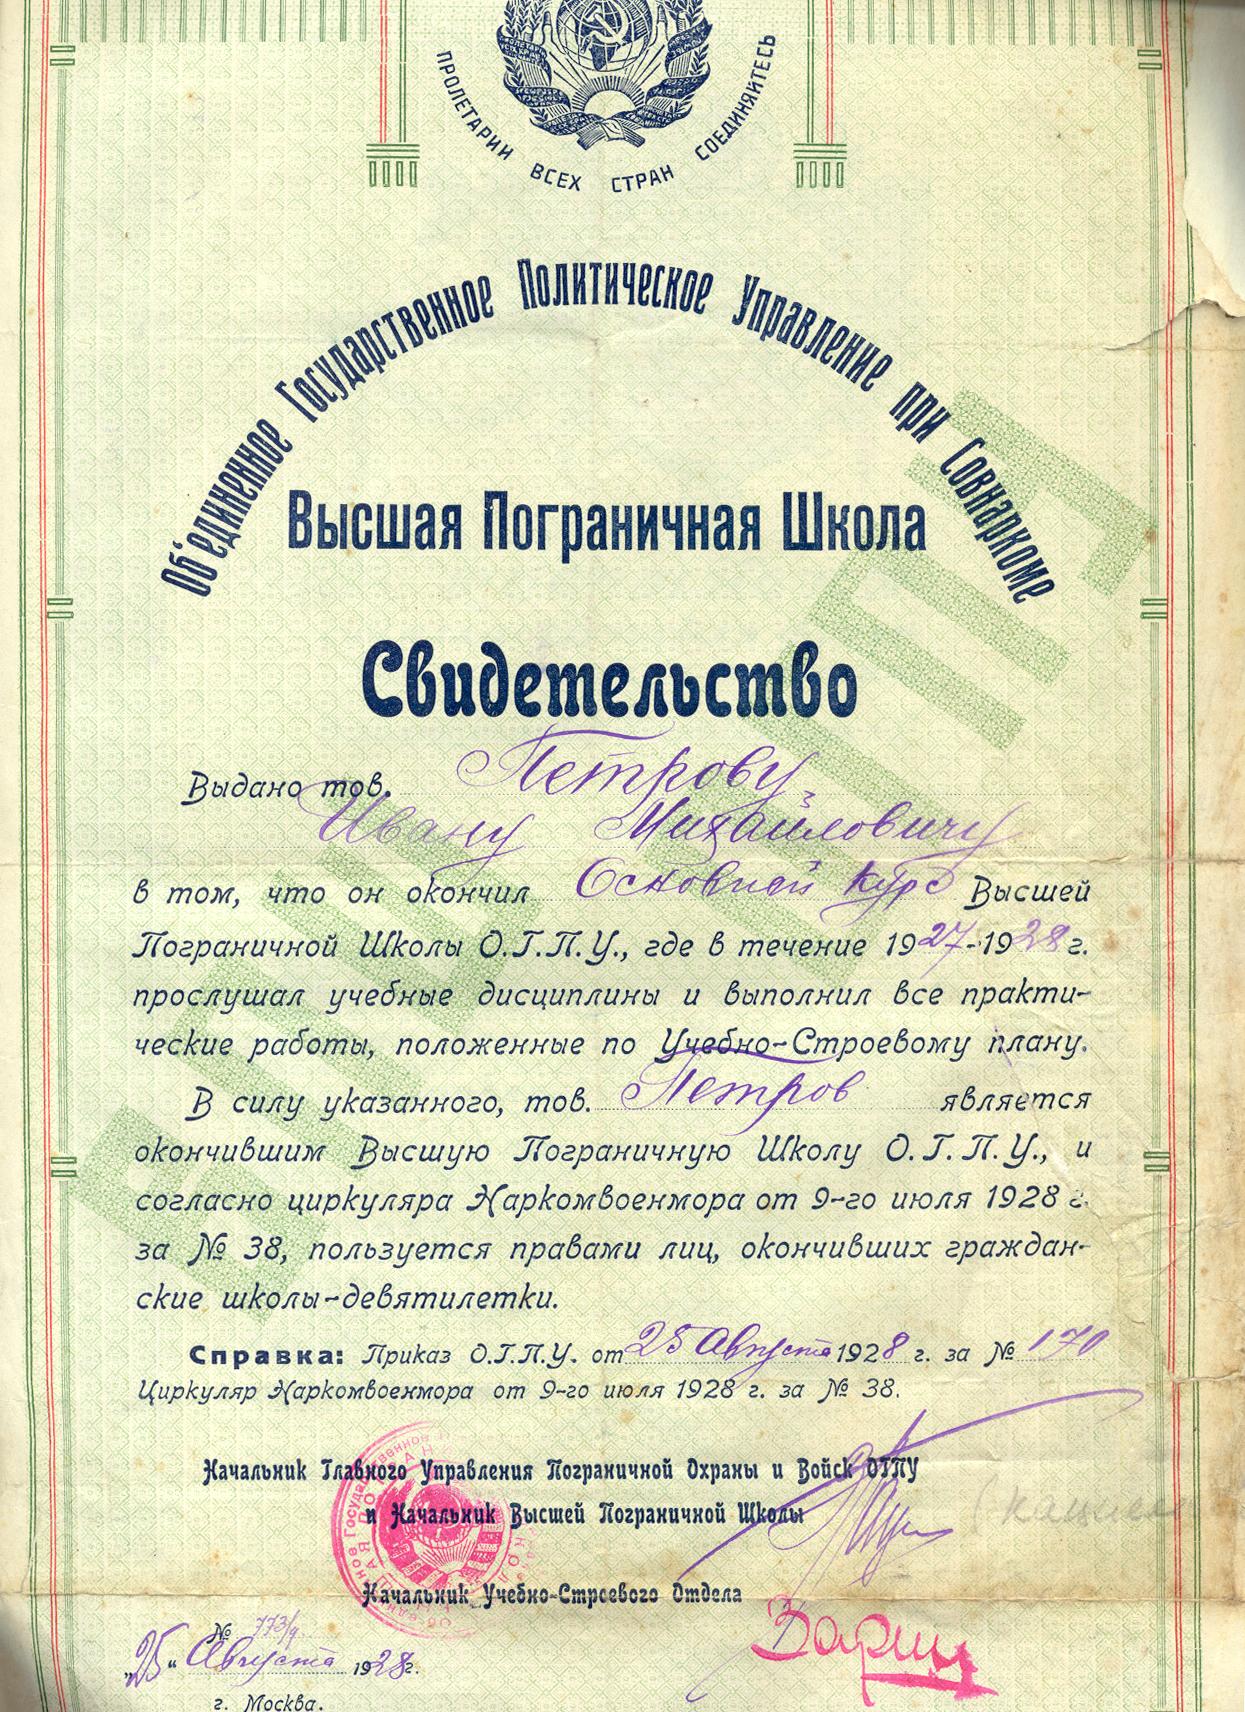 ПРОЛЕТАРИИ ВСЕХ СТРАН СОЕДИНЯЙТЕСЬ
Об'единенное Государственное Политическое Управление при Совнаркоме
Высшая Пограничная Школа
Свидетельство
Выдано тов. Петрову
Ивану Михайловичу
в том, что он окончил Основной курс Высшей
Пограничной Школы О.Г.П.У., где в течение 1927-1928 г.
прослушал учебные дисциплины и выполнил все практи-
ческие работы, положенные по Учебно-Строевому плану.
В силу указанного, тов. Петров является
окончившим Высшую Пограничную Школу О.Г.П.У., и
согласно циркуляра Наркомвоенмора от 9-го июля 1928 г.
за № 38, пользуется правами лиц, окончивших граждан-
ские школы-девятилетки.
Справка: Приказ О.Г.П.У. от 25 Августа 1928 г. за № 170
Циркуляр Наркомвоенмора от 9-го июля 1928 г. за № 38.
Начальник Главного Управления Пограничной Охраны и Войск ОГПУ
и Начальник Высшей Пограничной Школы
Начальник Учебно-Строевого Отдела
№ 773/9
„25“ Августа 1928 г.
г. Москва.